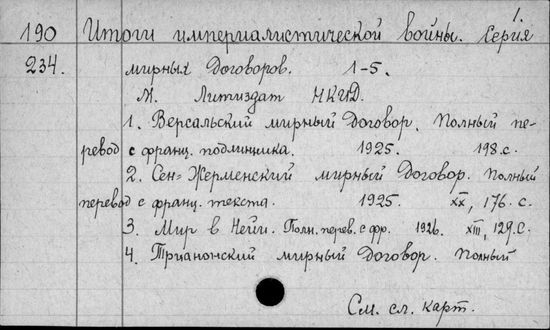 1.
190 Итоги империалистической войны. Серия
234. мирных договоров. 1-5.
М. Литиздат НКИД.
1. Версальский мирный договор. Полный пе-
ревод с франц. подлинника. 1925. 198 с.
2. Сен-Жерменский мирный договор. Полный
перевод с франц. текста. 1925. XX, 176. с.
3. Мир в Нейи. Полн. перев. с фр. 1926. XIII, 129. с.
4. Трианонский мирный договор. Полный
См. сл. карт.